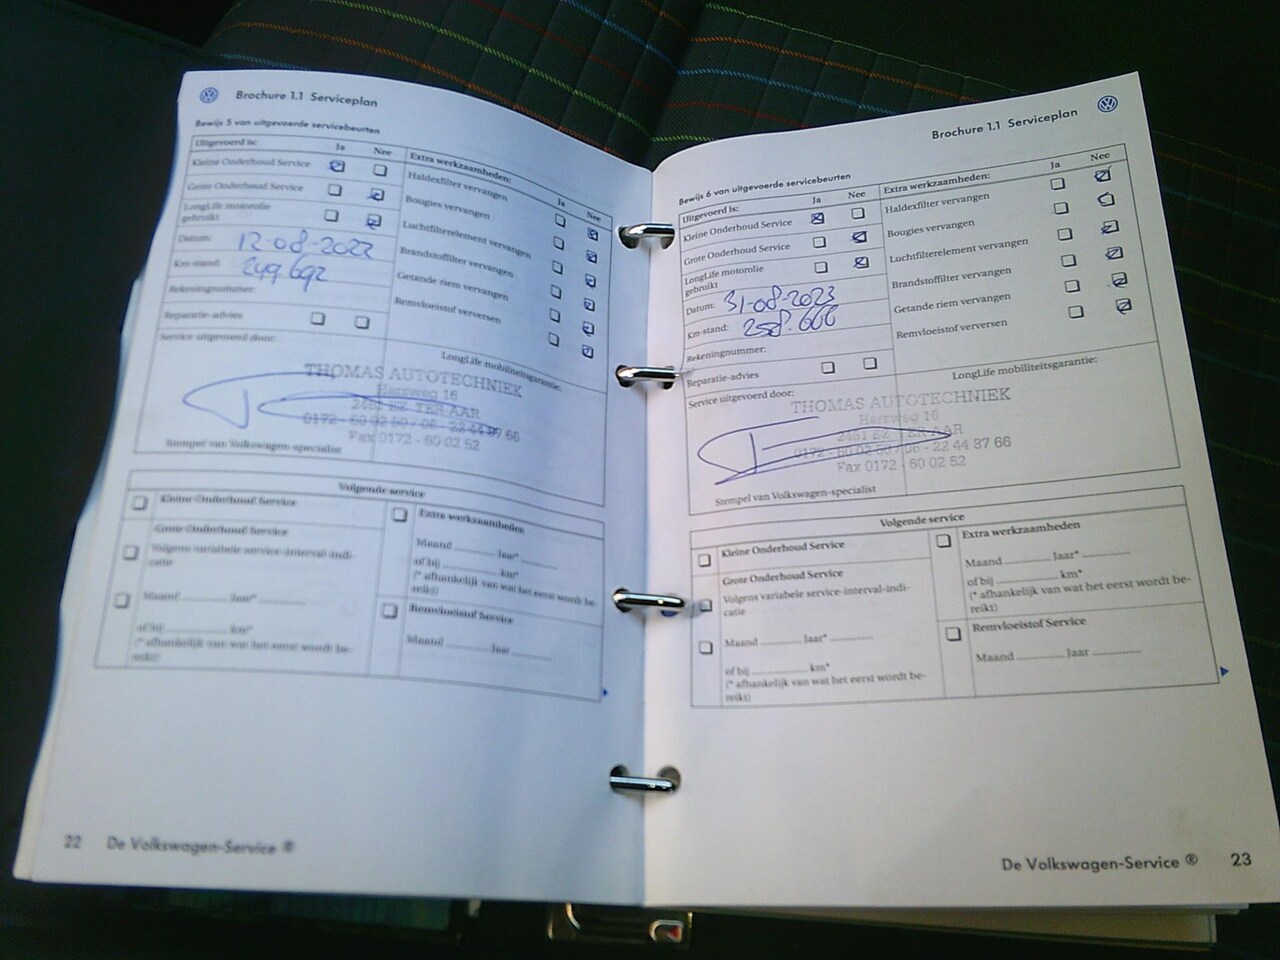 Brochure 1.1 Serviceplan
Bewijs 5 van uitgevoerde servicebeurten
Uitgevoerd is:
Ja
Nee
Kleine Onderhoud Service
Grote Onderhoud Service
LongLife motorolie
gebruikt
Datum: 12-08-2022
Km-stand: 249.692
Rekeningnummer:
Reparatie-advies
Extra werkzaamheden:
Ja
Nee
Haldexfilter vervangen
Bougies vervangen
Luchtfilterelement vervangen
Brandstoffilter vervangen
Getande riem vervangen
Remvloeistof verversen
Service uitgevoerd door:
LongLife mobiliteitsgarantie:
THOMAS AUTOTECHNIEK
Harsweg 16
2461 EZ TER AAR
0172 - 60 02 50 / 06 - 22 44 87 66
Fax 0172 - 60 02 52
Stempel van Volkswagen-specialist
Volgende service
Kleine Onderhoud Service
Grote Onderhoud Service
Volgens variabele service-interval-indi-
catie
Maand ............ Jaar* ............
of bij ............ km*
(* afhankelijk van wat het eerst wordt be-
reikt)
Extra werkzaamheden
Maand ............ Jaar* ............
of bij ............ km*
(* afhankelijk van wat het eerst wordt be-
reikt)
Remvloeistof Service
Maand ............ Jaar ............
22 De Volkswagen-Service ®
Brochure 1.1 Serviceplan
Bewijs 6 van uitgevoerde servicebeurten
Uitgevoerd is:
Ja
Nee
Kleine Onderhoud Service
Grote Onderhoud Service
LongLife motorolie
gebruikt
Datum: 31-08-2023
Km-stand: 258.666
Rekeningnummer:
Reparatie-advies
Extra werkzaamheden:
Ja
Nee
Haldexfilter vervangen
Bougies vervangen
Luchtfilterelement vervangen
Brandstoffilter vervangen
Getande riem vervangen
Remvloeistof verversen
Service uitgevoerd door:
LongLife mobiliteitsgarantie:
THOMAS AUTOTECHNIEK
Harsweg 16
2461 EZ TER AAR
0172 - 60 02 50 / 06 - 22 44 87 66
Fax 0172 - 60 02 52
Stempel van Volkswagen-specialist
Volgende service
Kleine Onderhoud Service
Grote Onderhoud Service
Volgens variabele service-interval-indi-
catie
Maand ............ Jaar* ............
of bij ............ km*
(* afhankelijk van wat het eerst wordt be-
reikt)
Extra werkzaamheden
Maand ............ Jaar* ............
of bij ............ km*
(* afhankelijk van wat het eerst wordt be-
reikt)
Remvloeistof Service
Maand ............ Jaar ............
De Volkswagen-Service ® 23